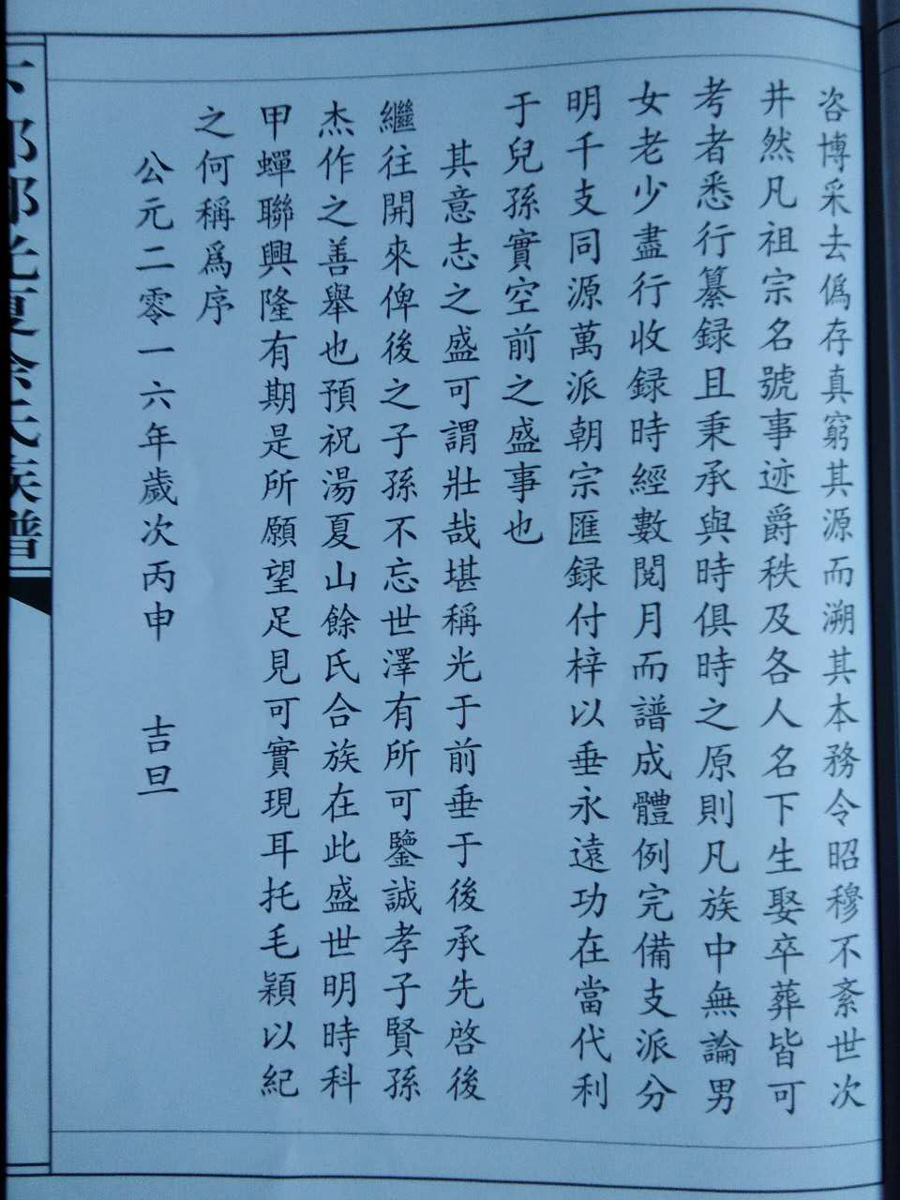 咨博采去僞存真窮其源而溯其本務令昭穆不紊世次
井然凡祖宗名號事迹爵秩及各人名下生娶卒葬皆可
考者悉行纂録且秉承與時俱時之原則凡族中無論男
女老少盡行收録時經數閲月而譜成體例完備支派分
明千支同源萬派朝宗匯録付梓以垂永遠功在當代利
于兒孫實空前之盛事也
其意志之盛可謂壯哉堪稱光于前垂于後承先啓後
繼往開來俾後之子孫不忘世澤有所可鑒誠孝子賢孫
杰作之善舉也預祝湯夏山餘氏合族在此盛世明時科
甲蟬聯興隆有期是所願望足見可實現耳托毛穎以紀
之何稱爲序
公元二零一六年歲次丙申 吉旦
夏余氏族譜